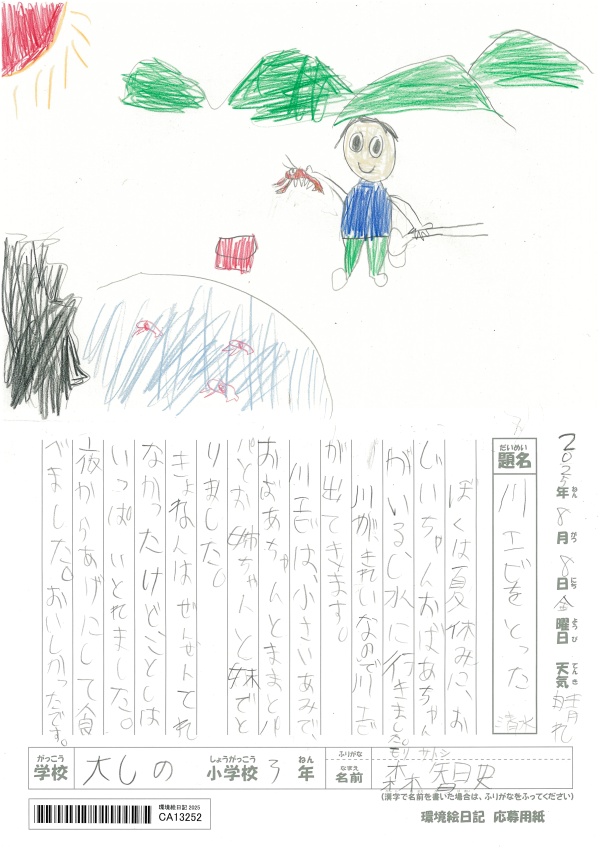 2025年8月8日金曜日 天気晴れ
ねん がつ にち ようび てんき
だいめい
題名 川エビをとった
清水
ぼくは夏休みに、お
じいちゃんおばあちゃん
がいる、し水に行きました。
川が、きれいなので川エビ
が出てきます。
川エビは、小さいあみで、
おばあちゃんとままとパ
パとお姉ちゃんと妹でと
りました。
きょねんはぜんぜんとれ
なかったけどことしは
いっぱいとれました。
夜からあげにして食
べました。おいしかったです。
がっこう しょうがっこう ねん
学校 大しの 小学校 3年
ふりがな モリ サトシ
なまえ
名前 森 智史
(漢字で名前を書いた場合は、ふりがなをふってください)
環境絵日記 2025
CA13252
環境絵日記 応募用紙